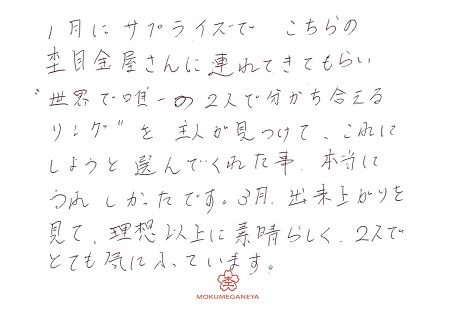 1月にサプライズで こちらの
杢目金屋さんに連れてきてもらい
"世界で唯一の2人で分かち合える
リング"を 主人が見つけて、これに
しようと選んでくれた事、本当に
うれしかったです。3月、出来上がりを
見て、理想以上に素晴らしく、2人で
とても気に入っています。
MOKUMEGANEYA